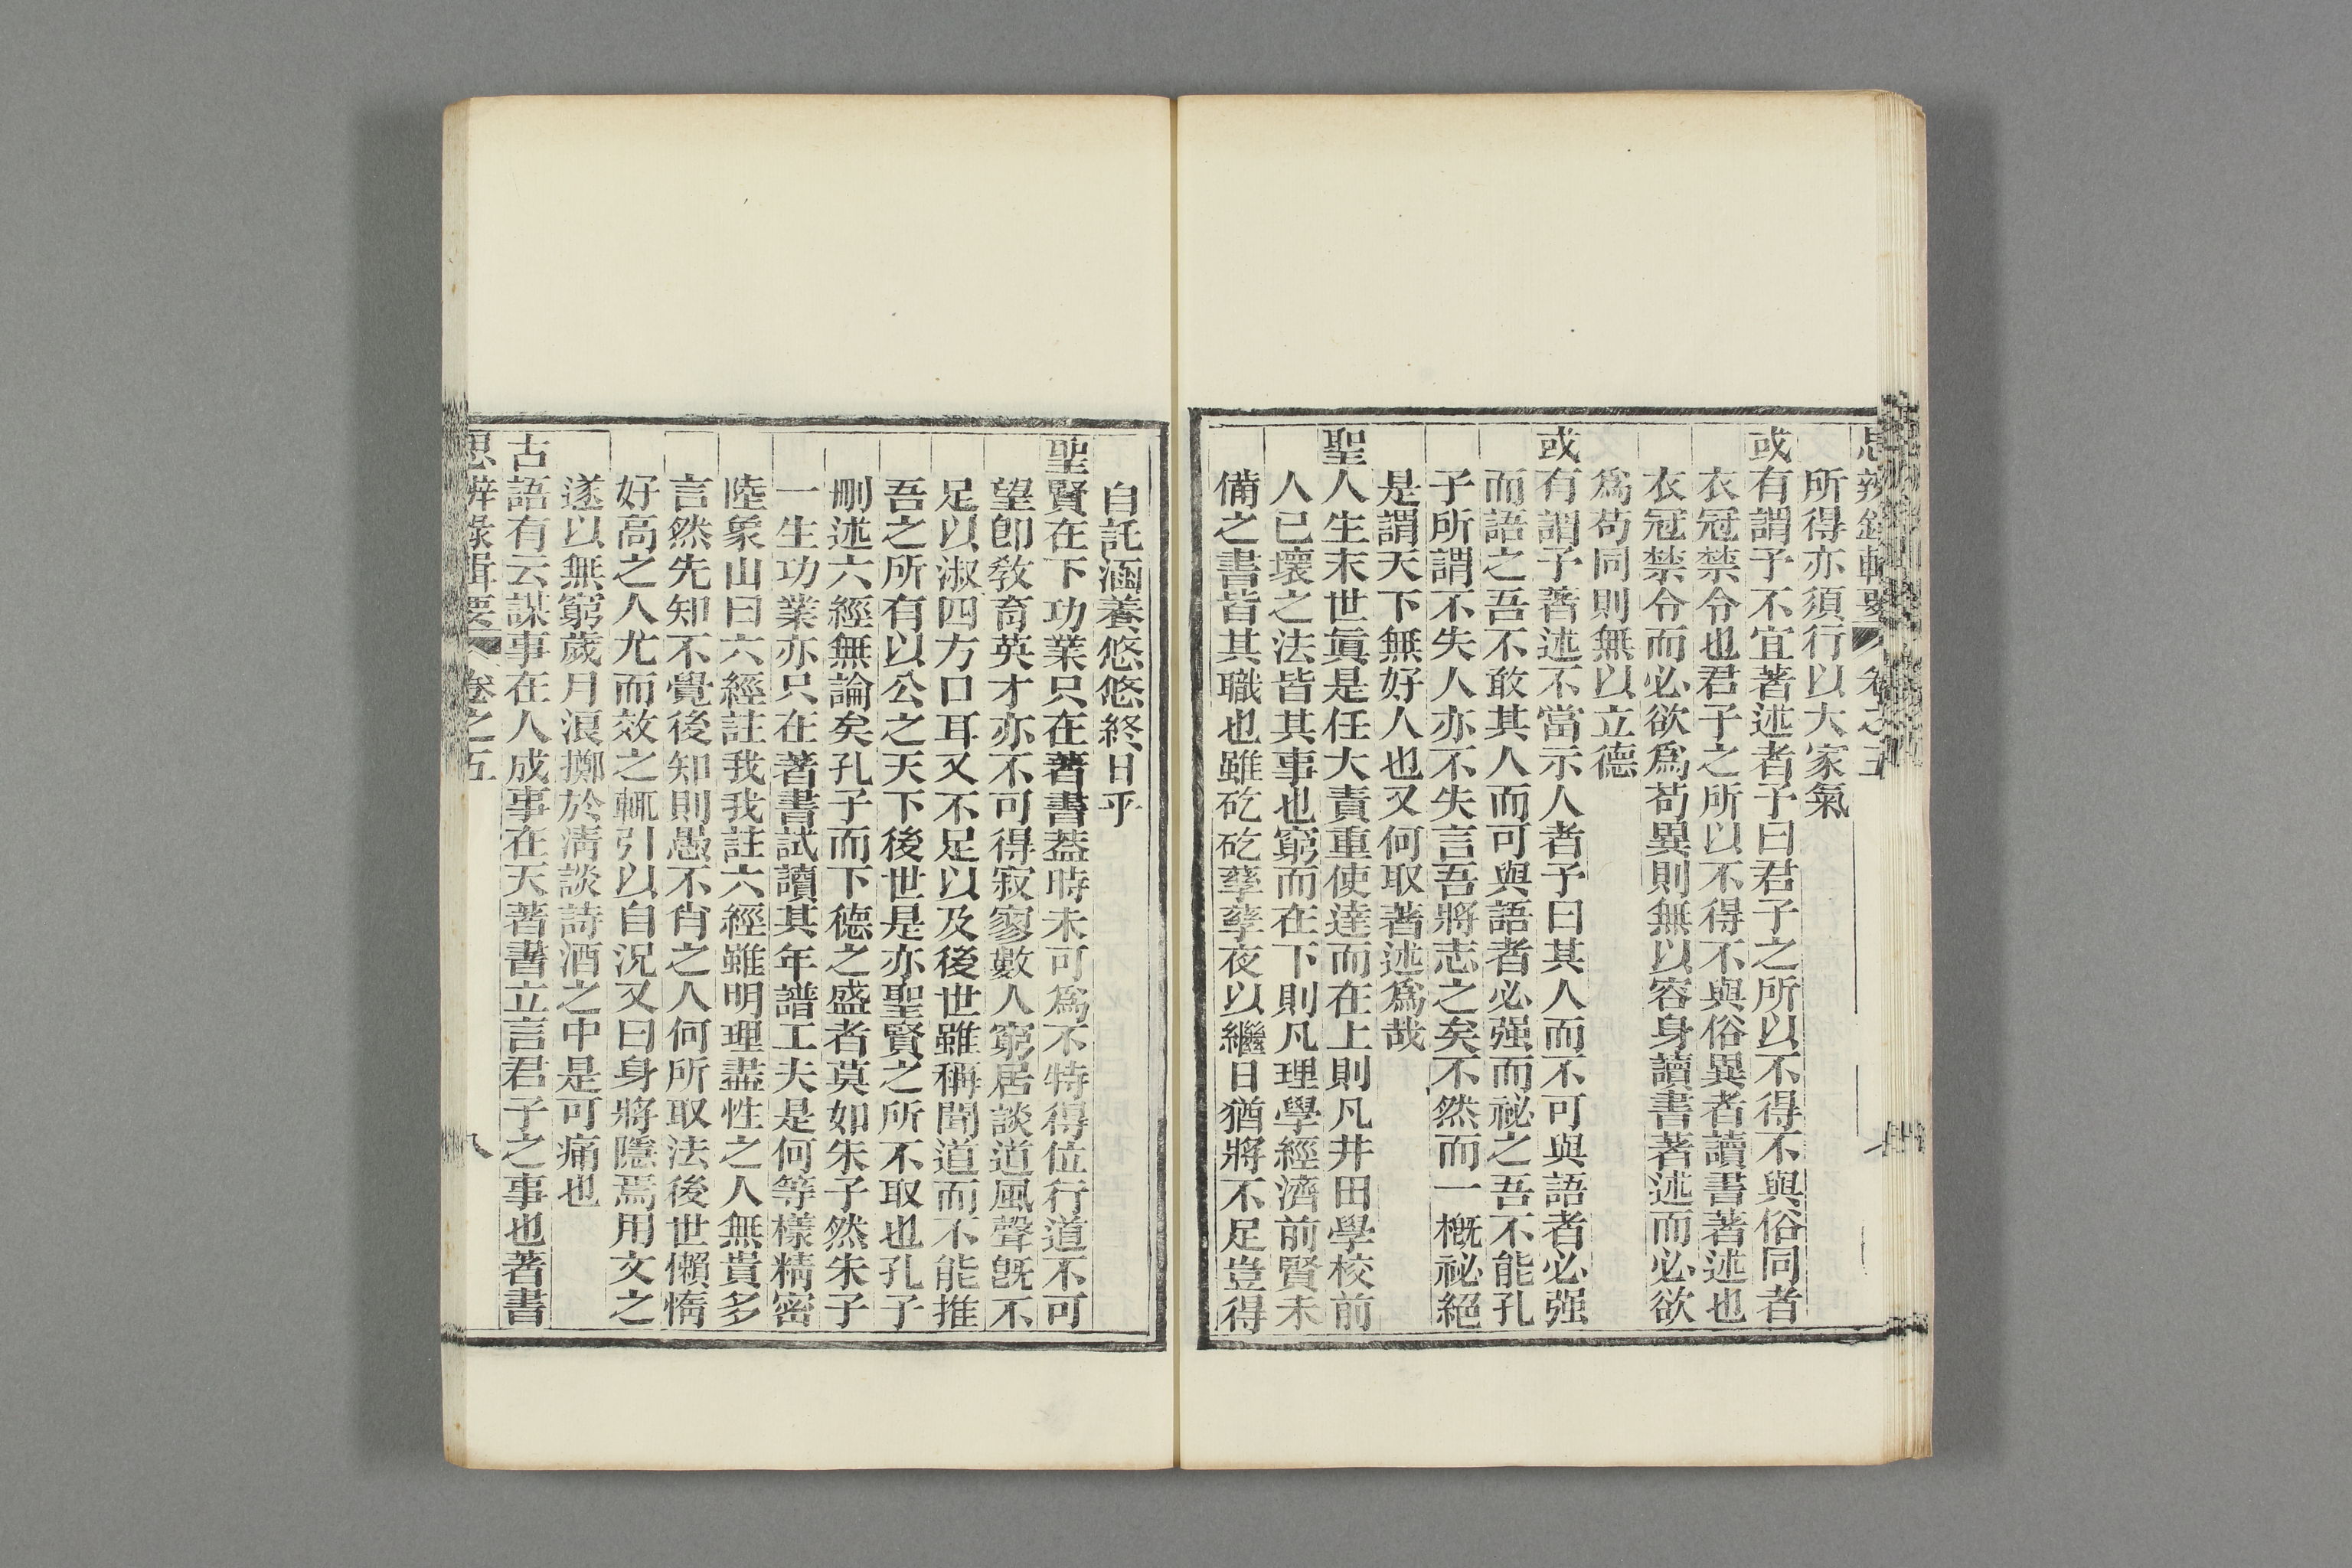 思辨錄輯要 卷之五
所得亦須行以大家氣
或有謂予不宜著述者予曰君子之所以不得不與俗同者
衣冠禁令也君子之所以不得不與俗異者讀書著述也
衣冠禁令而必欲爲苟異則無以容身讀書著述而必欲
爲苟同則無以立德
或有謂予著述不當示人者予曰其人而不可與語者必强
而語之吾不敢其人而可與語者必强而祕之吾不能孔
子所謂不失人亦不失言吾將志之矣不然而一槪祕絕
是謂天下無好人也又何取著述爲哉
聖人生末世眞是任大責重使達而在上則凡井田學校前
人已壞之法皆其事也窮而在下則凡理學經濟前賢未
備之書皆其職也雖矻矻孳孳夜以繼日猶將不足豈得
自託涵養悠悠終日乎
聖賢在下功業只在著書葢時未可爲不特得位行道不可
望卽敎育英才亦不可得寂寥數人窮居談道風聲旣不
足以淑四方口耳又不足以及後世雖稱聞道而不能推
吾之所有以公之天下後世是亦聖賢之所不取也孔子
刪述六經無論矣孔子而下德之盛者莫如朱子然朱子
一生功業亦只在著書試讀其年譜工夫是何等樣精密
陸象山曰六經註我我註六經雖明理盡性之人無貴多
言然先知不覺後知則愚不肖之人何所取法後世懶惰
好高之人尤而效之輒引以自況又曰身將隱焉用文之
遂以無窮歲月浪擲於淸談詩酒之中是可痛也
古語有云謀事在人成事在天著書立言君子之事也著書
思辨錄輯要 卷之五 八